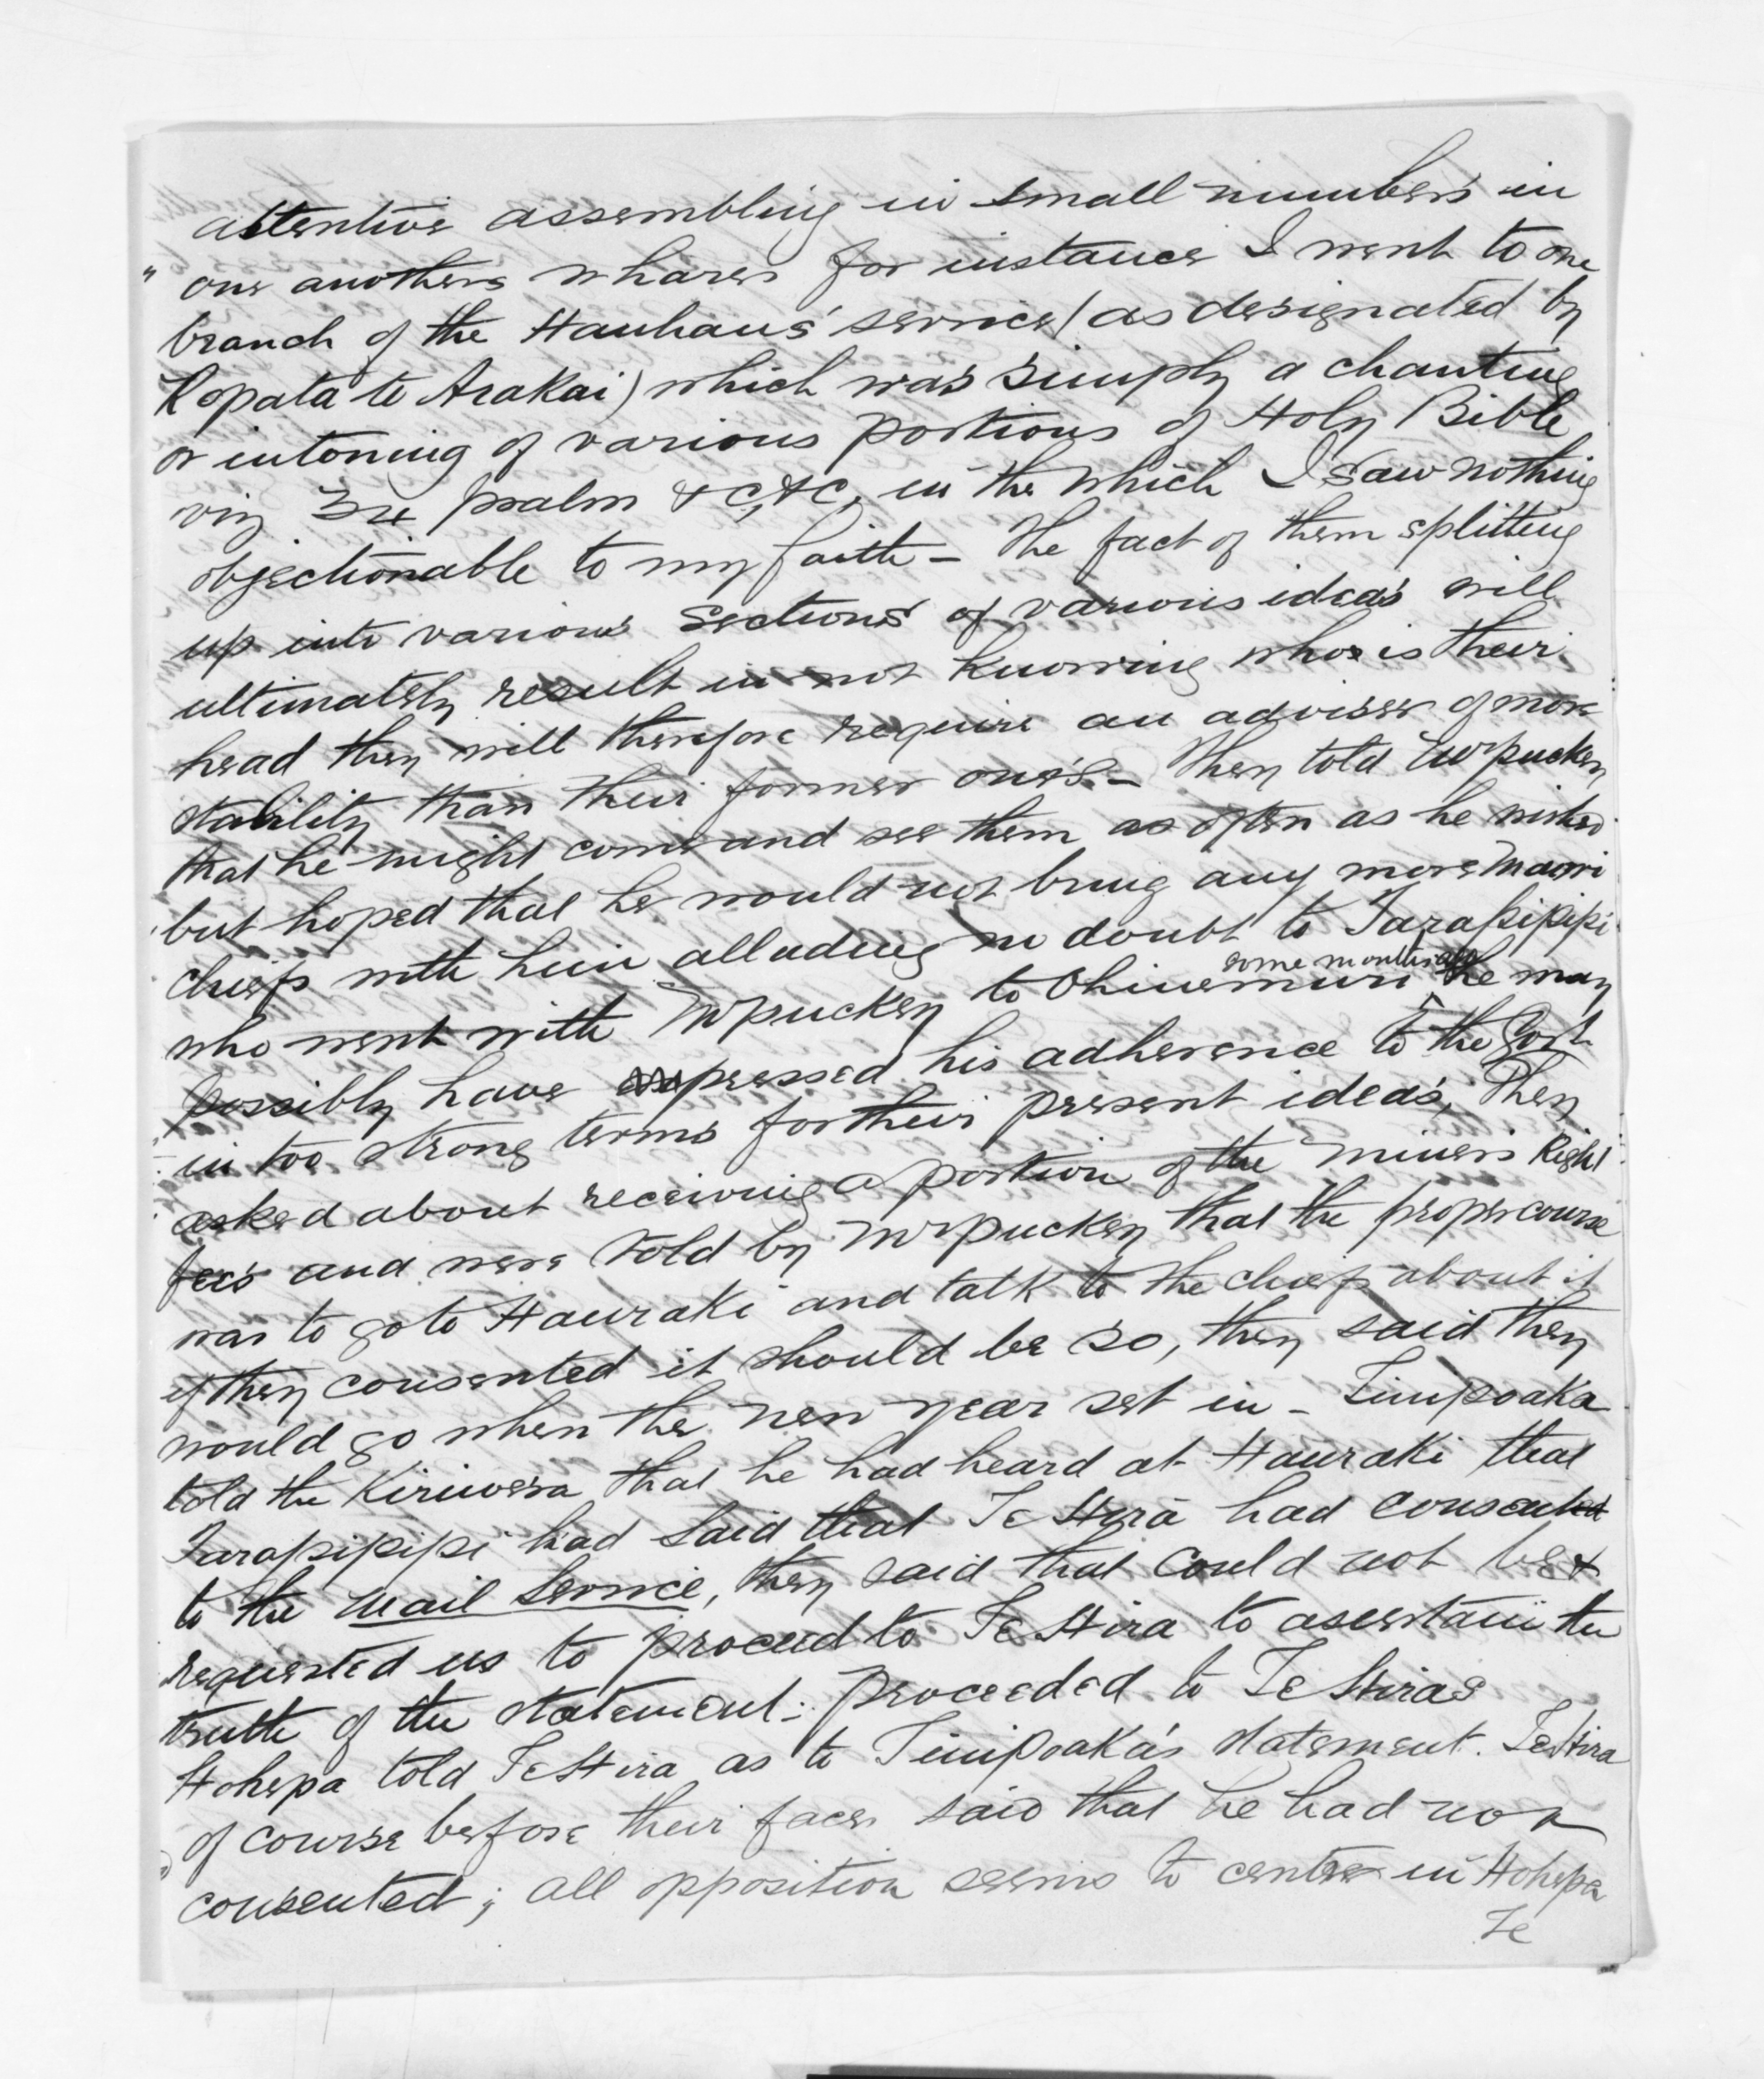 attentive assembling in small numbers in
" one anothers whares for instance I went to one
branch of the Hauhaus' service (as designated by
Ropata te Arakai) which was simply a chanting
or intoning of various portions of Holy Bible
viz psalm &c, &c, in the which I saw nothing
objectionable to my faith - The fact of them splitting
up into various sections of various ideas will
ultimately result in not knowing who is their
head they will therefore require an adviser of more
stability than their former one's - They told Mr Puckey
that he might come and see them as often as he wished
but hoped that he would not bring any more Maori
chiefs with him alluding no doubt to Tarapipipi
who went with Mr Puckey to Ohinemuri some months ago he may
possibly have expressed his adherence to the Govt
in too strong terms for their present ideas; They
asked about receiving a portion of the miners Right
fees and were told by Mr Puckey that the proper course
was to go to Hauraki and talk to the chiefs about it
if they consented it should be so, they said they
would go when the new year set in - Timipoaka
told the Kiriwera that he had heard at Hauraki that
Tarapipipi had said that Te Hira had consented
to the mail service, they said that could not be &
requested us to proceed to Te Hira to ascertain the
truth of the statement; proceeded to Te Hiras
Hohepa told Te Hira as to Timipoaka's statement. Te Hira
of course before their faces said that he had not
consented; all opposition seems to centre in Hohepa
Te